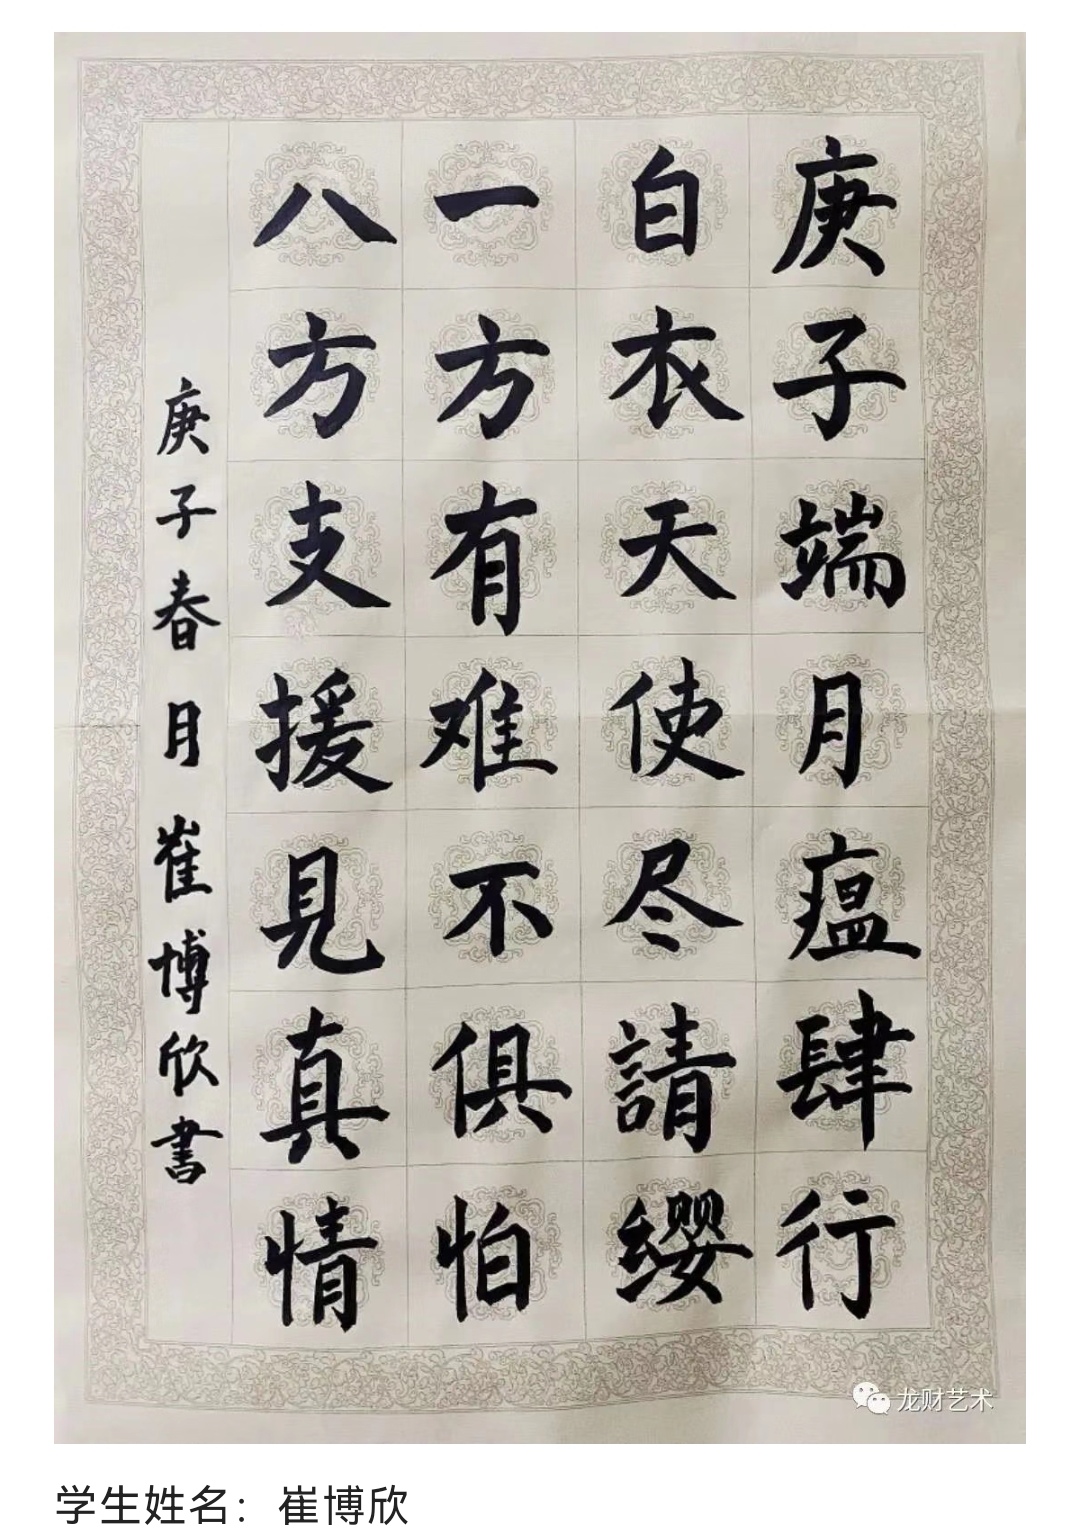 庚子端月瘟肆行
白衣天使尽請缨
一方有难不俱怕
八方支援見真情
庚子春月崔博欣書
龙财艺术
学生姓名：崔博欣